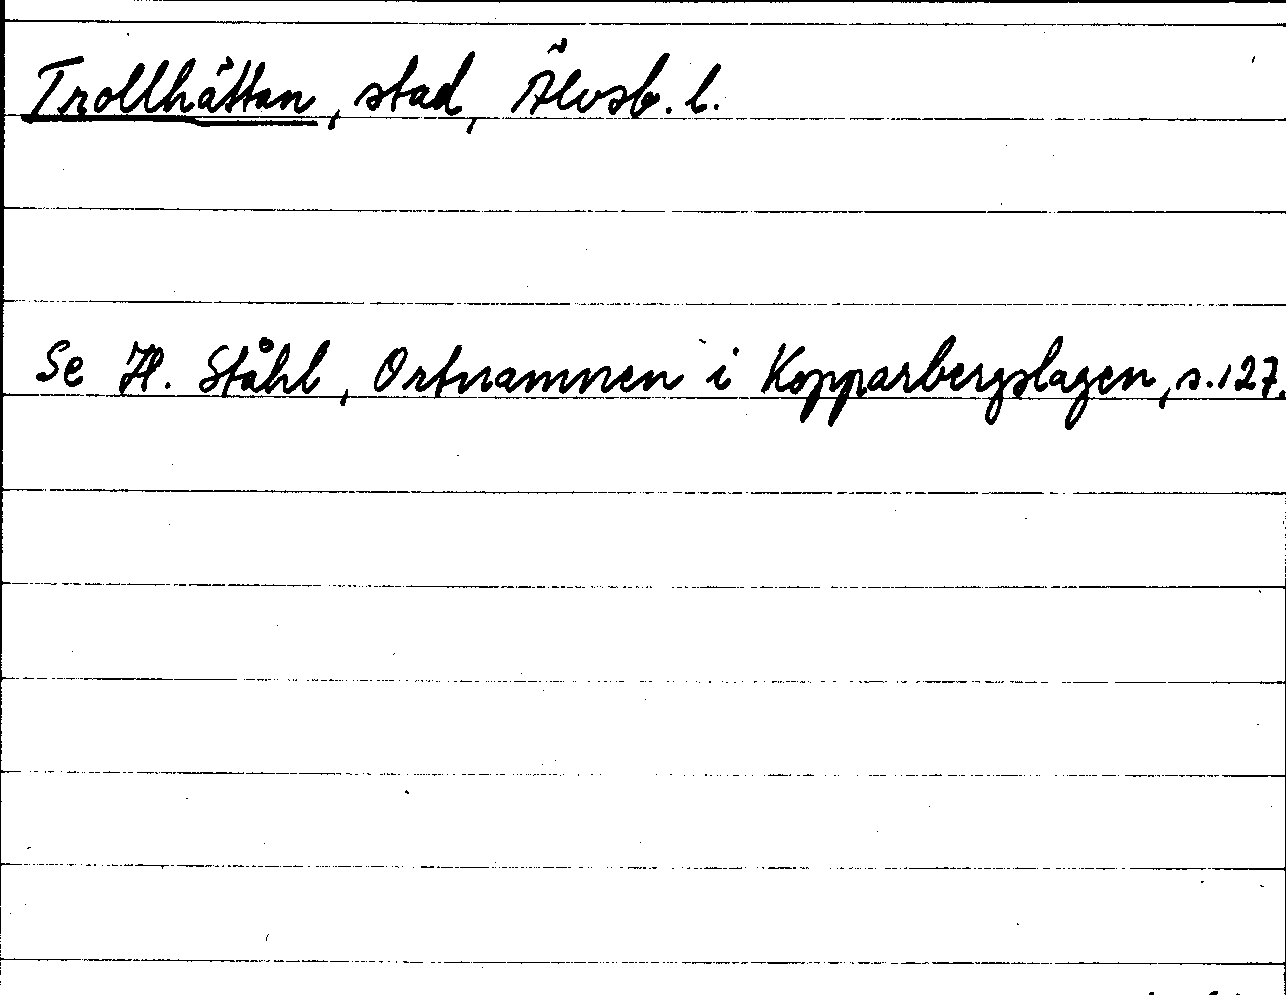 Trollhättan, stad, Älvsb. l.
Se H. Ståhl, Ortnamnen i Kopparbergslagen, s. 127.